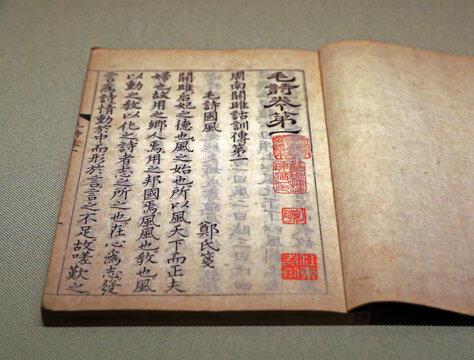 毛詩卷第一
周南關雎詁訓傳第一
毛詩國風 鄭氏箋
關雎后妃之德也風之始也所以風天下而正夫
婦也故用之鄉人焉用之邦國焉風風也教也風
以動之教以化之詩者志之所之也在心為志發
言為詩情動於中而形於言言之不足故嗟歎之